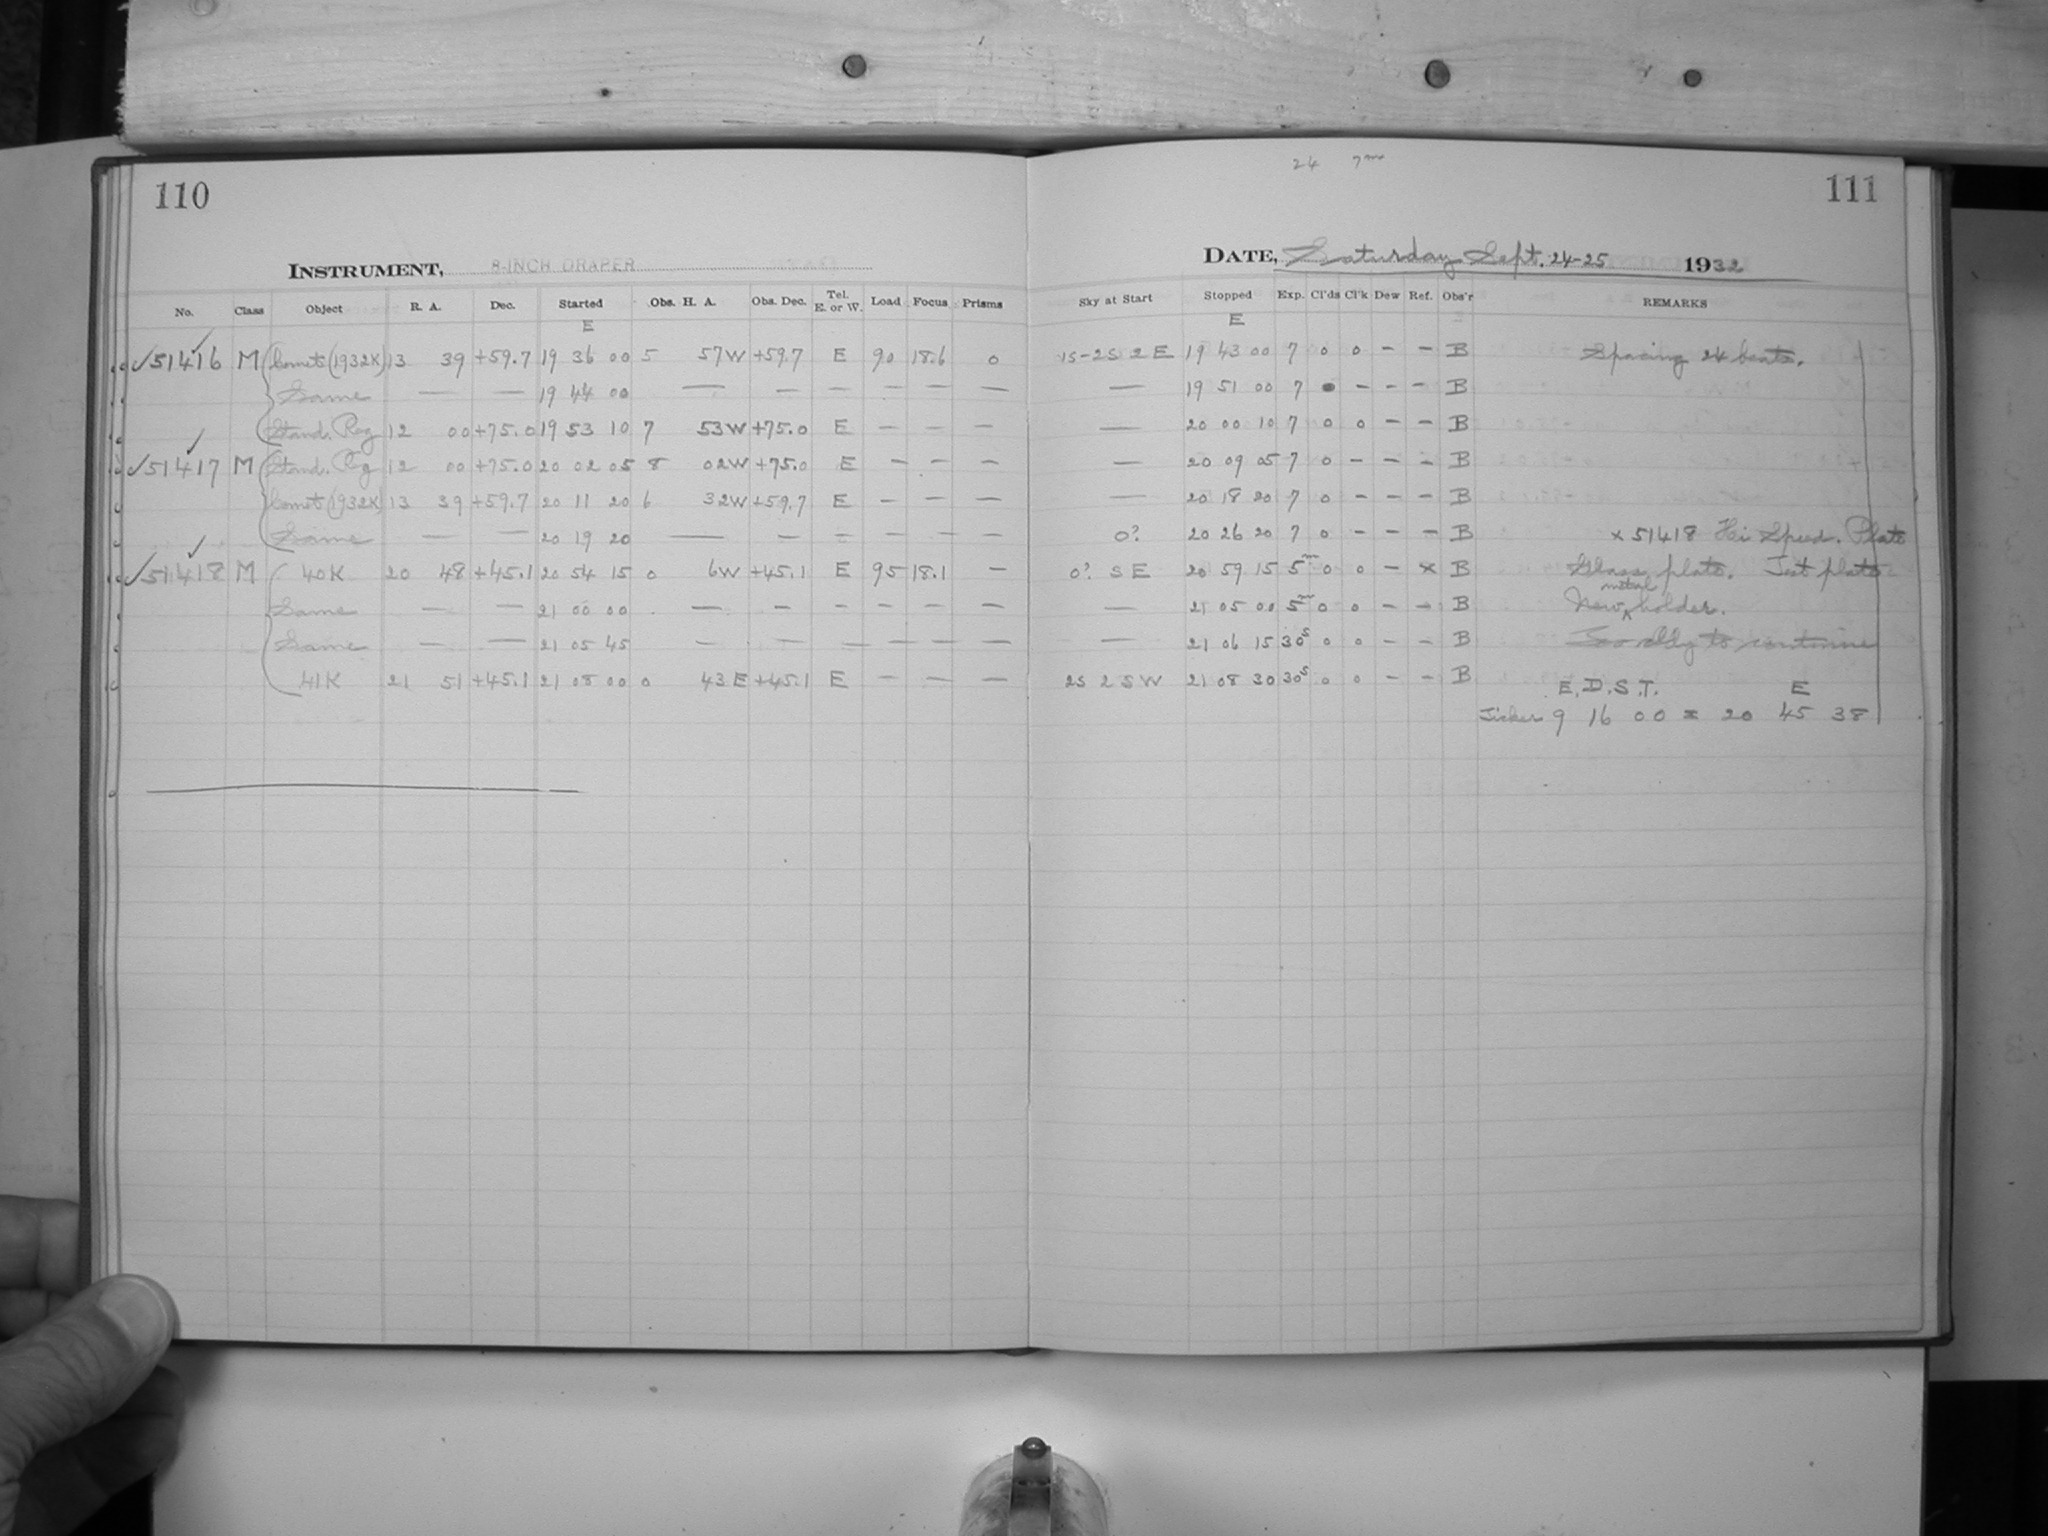 24 7m
110
111
INSTRUMENT, 8-INCH DRAPER
DATE, Saturday Sept. 24-25 1932
No. Class Object R. A. Dec. Started Obs. H. A. Obs. Dec. Tel. E. or W. Load Focus Prisms Sky at Start Stopped Exp. Cl'ds Cl'k Dew Ref. Obs'r REMARKS
E E
✓51416 M Comet (1932K) 13 39 +59.7 19 36 00 5 57W +59.7 E 90 18.6 0 1S-2S 2 E 19 43 00 7 0 0 – – B Spacing 24 beats.
Same — — 19 44 00 — — – – – – — 19 51 00 7 – – – B
Stand. Reg 12 00 +75.0 19 53 10 7 53W +75.0 E – – – — 20 00 10 7 0 0 – – B
✓51417 M Stand. Reg 12 00 +75.0 20 02 05 8 02W +75.0 E – – – — 20 09 05 7 0 – – – B
Comet (1932K) 13 39 +59.7 20 11 20 6 32W +59.7 E – – – — 20 18 20 7 0 – – – B
Same — — 20 19 20 — – – – – – 0? 20 26 20 7 0 – – – B x 51418 Hi Speed. Plate
✓51418 M 40K 20 48 +45.1 20 54 15 0 6W +45.1 E 95 18.1 – 0? S E 20 59 15 5m 0 0 – x B Glass plate. Test plate
Same — — 21 00 00 — – – – – – — 21 05 00 5m 0 0 – – B New metal holder.
Same — — 21 05 45 – – – – – – — 21 06 15 30s 0 0 – – B Too cldy to continue
41K 21 51 +45.1 21 08 00 0 43 E +45.1 E – – – 2S 2 S W 21 08 30 30s 0 0 – – B
E.D.S.T. E
Ticker 9 16 00 = 20 45 38